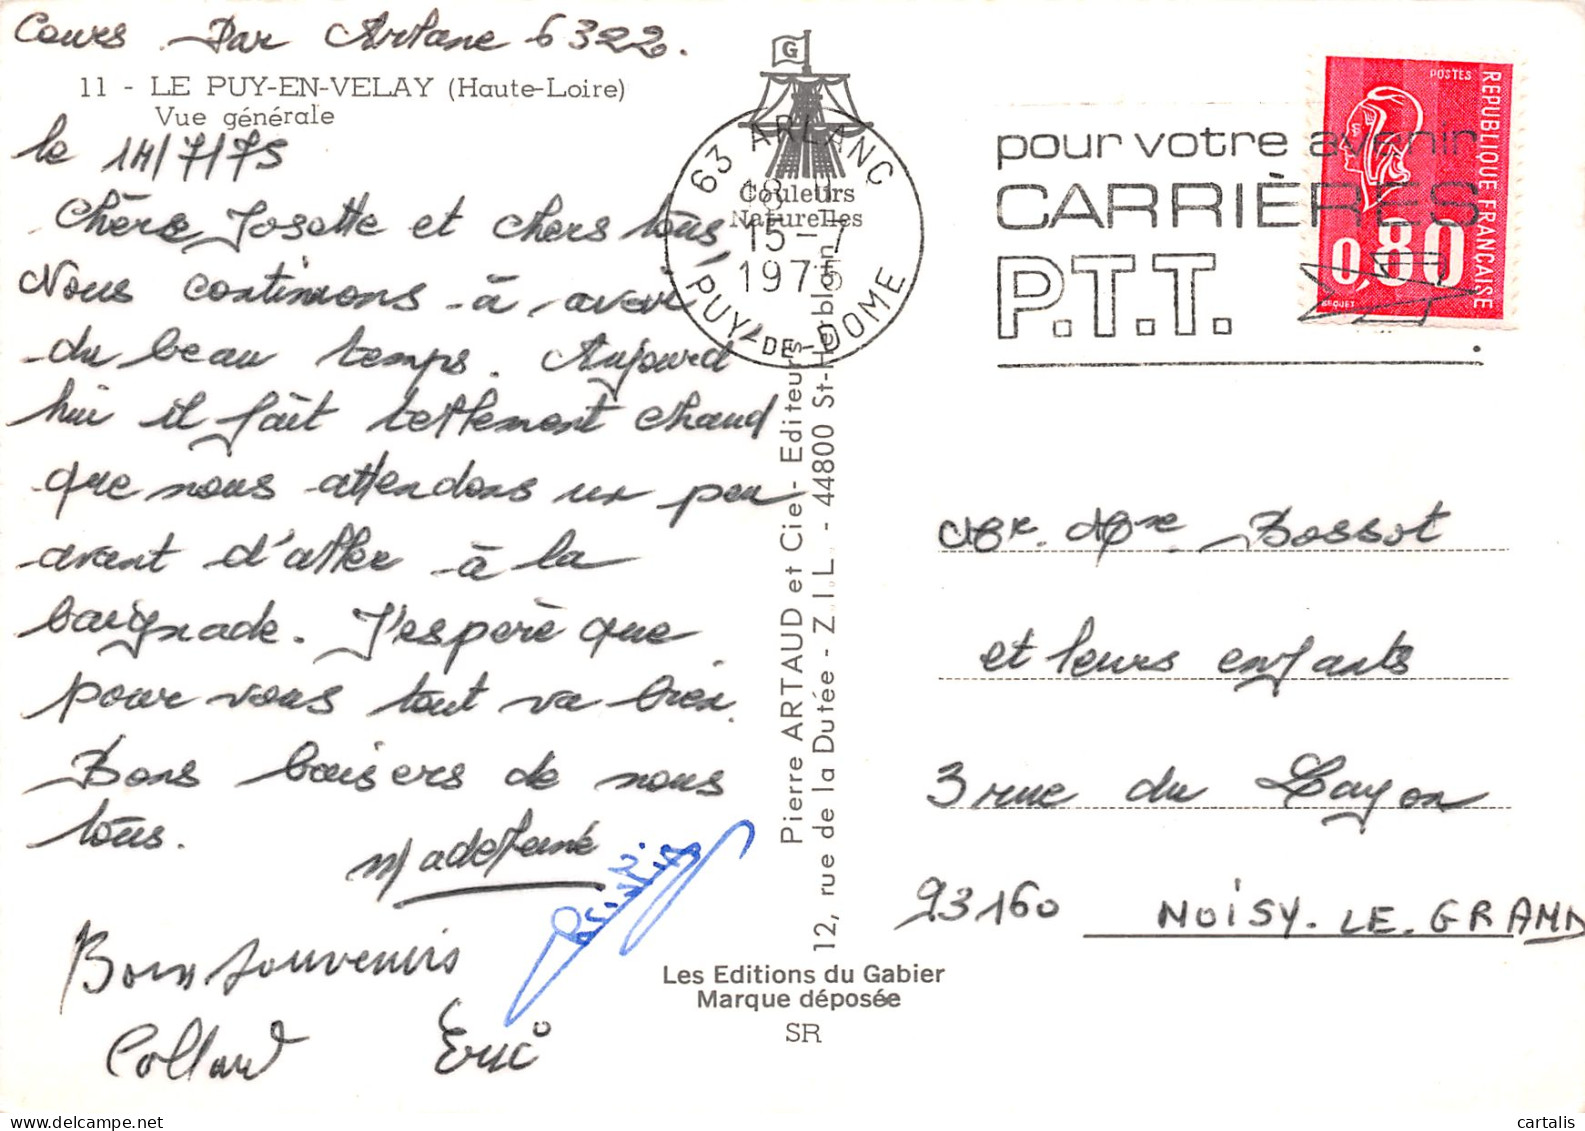 Cours Par Arlane 6322.
11 - LE PUY-EN-VELAY (Haute-Loire)
Vue générale
le 14/7/75
Chère Josette et chers tous,
Nous continuons à avoir
du beau temps. Aujourd
hui il fait tellement chaud
que nous attendons un peu
avant d'aller à la
baignade. J'espère que
pour vous tout va bien.
Bons baisers de nous
tous.
Madeleine
Bons souvenirs
Collard Eric
G
Couleurs
Naturelles
63 ARLANC
18 H
15-7
1975
PUY-DE-DOME
Pierre ARTAUD et Cie - Editeurs
12, rue de la Dutée - Z.I.L. - 44800 St-Herblain
Les Editions du Gabier
Marque déposée
SR
pour votre avenir
CARRIÈRES
P.T.T.
POSTES
REPUBLIQUE FRANÇAISE
0,80
BEQUET
Mr. Mme. Bossot
et leurs enfants
3 rue du Layon
93160 NOISY-LE-GRAND
cartalis